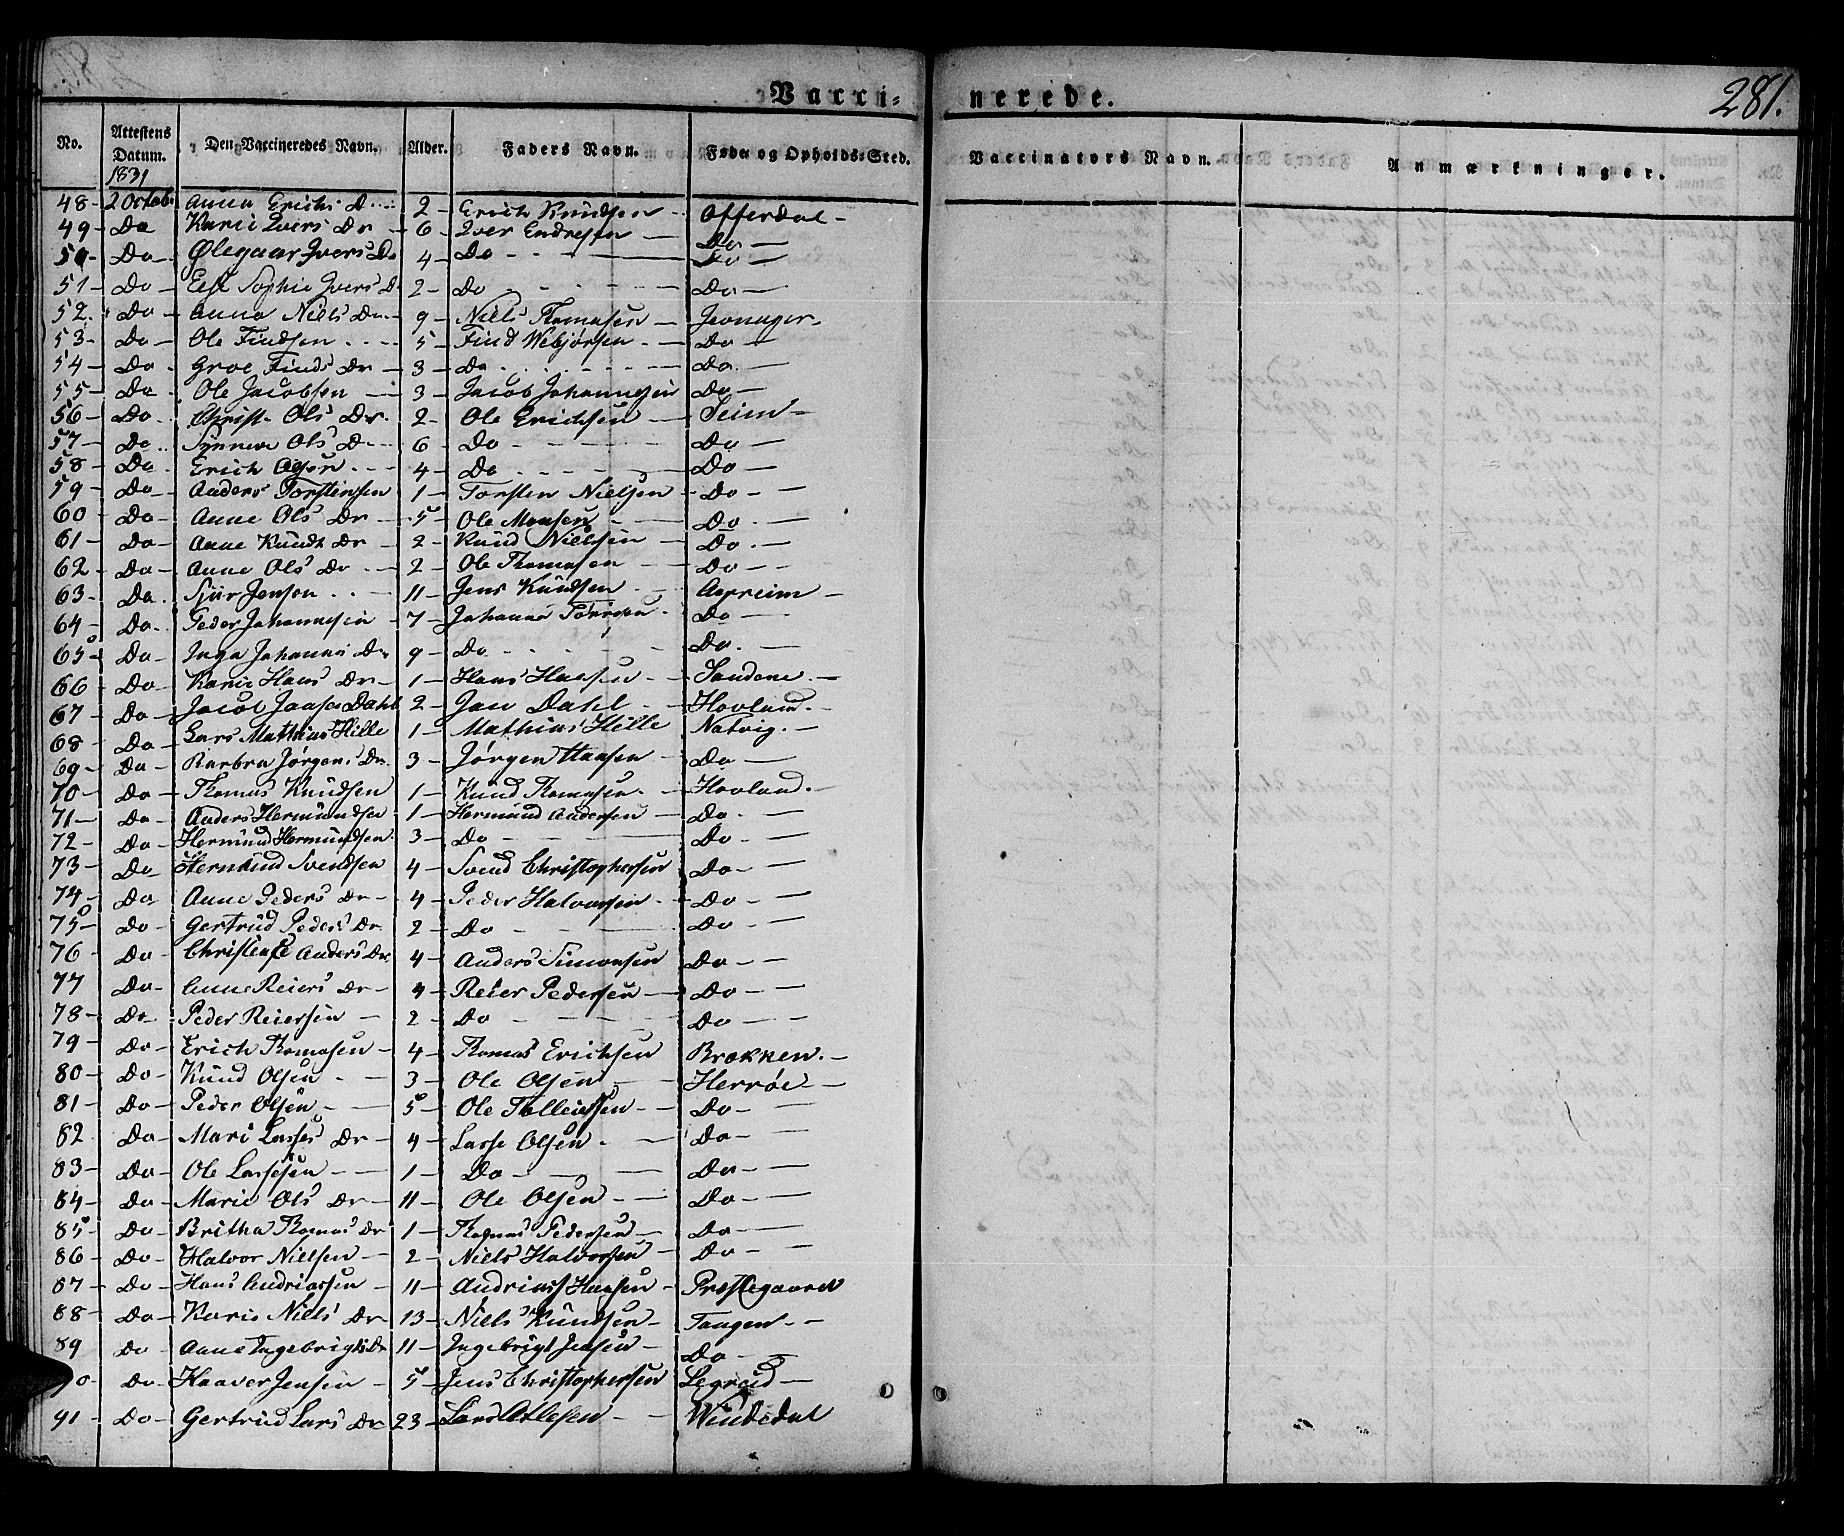 281.
Vacci= nerede.
No. Attestens Datum. Den Vaccineredes Navn. Alder. Faders Navn. Føde og Opholds=Sted. Vaccinators Navn. Anmærkninger.
1831
48 - 2 Octob. Anna Erichs D. 2 - Erich Knudsen - Offerdal -
49 - Do Kari Ivers Dr - 6 - Iver Endresen - Do -
50 - Do - Ølegaar Ivers D 4 - Do - - - Do -
51 - Do - Else Sophie Ivers D. 2 - Do - - - Do -
52. Do - Anna Niels Dr. - 9 - Niels Thomasen - Jevnager -
53 - Do - Ole Findsen - - - 5 - Find Webjørsen - - Do -
54 - Do - Groe Finds Dr - 3 - Do - - - Do. -
55 - Do. Ole Jacobsen - 3 - Jacob Johannesen Do -
56 - Do. Christi Ols Dr. 2 - Ole Erichsen - Seim -
57 - Do. Synneve Ols D. - 6 - Do - - - Do -
58 - Do. Erich Olsen - - - 4 - Do - - - Do -
59 - Do - Anders Torstensen 1 - Torsten Nielsen - Do - -
60 Do - Anne Ols Dr - 5 - Ole Monsen - - Do. -
61 - Do - Anne Knuds Dr - 2 - Knud Nielsen - Do. -
62 - Do - Anne Ols Dr - 2 - Ole Thomasen - Do - -
63 - Do. Sjur Jenson . . - 11 - Jens Knudsen - Aspreim -
64 - Do - Peder Johannesen - 7 - Johannes - Do -
65 Do - Inga Johannes Dr 9 - Do - - - Do. -
66 - Do - Karie Hans Dr - 1 - Hans Hansen - - Sandene. -
67 - Do - Jacob Jansen Dahl 2 - Jan Dahl - - Hovland. -
68 - Do - Lars Mathias Hille 1 - Mathias Hille Natvig. -
69 - Do - Barbra Jørgens Dr. 3 - Jørgen Haasen - Do -
70 - Do - Thomas Knudsen 1 - Knud Thomasen. - Hovland. -
71 - Do - Anders Hermundsen 1 - Hermund Andersen - Do. -
72 - Do - Hermund Hermundsen 3 - Do - - - Do. -
73 - Do - Hermund Svendsen 4 - Svend Christophersen Do - -
74 - Do Anne Peders Dr - 4 - Peder Halvorsen - Do - -
75 - Do - Gertrud Peders Dr. 2 - Do - - - Do - -
76 - Do - Christense Anders Dr. 4 - Anders Simonsen Do - -
77 Do - Anne Reiers Dr - 4 - Reier Pedersen - Do - -
78 - Do - Peder Reiersen - 2 - Do - - - Do - -
79 - Do - Erich Thomasen - 4 - Thomas Erichsen Brækken. -
80 - Do - Knud Olsen - - 3 - Ole Olsen - Herrøe -
81 - Do - Peder Olsen - - 5 - Ole Tolleivsen - - Do - -
82 Do - Mari Lasses Dr - 4 - Lasse Olsen - - Do - -
83 - Do - Ole Lassesen - - 1 - Do - - - Do - -
84 - Do - Marie Ols Dr - 11 - Ole Olsen - - Do - -
85 - Do - Britha Thomas Dr 1 - Thomas Pedersen - Do - -
86 - Do - Halvor Nielsen - 2 - Niels Halvorsen - Do - -
87 - Do - Hans Andriassen - 11 - Andrias Hansen - Præstegaarde
88 - Do - Karie Niels Dr - 13 - Niels Knudsen - Tangen - -
89 Do - Anne Ingebrigts Dr 11 - Ingebrigt Jensen - Do - -
90 - Do - Haaver Jensen - 5 - Jens Christophersen Legreid -
91 - Do - Gertrud Lars Dr 23 - Lars Atlesen - - Windedal